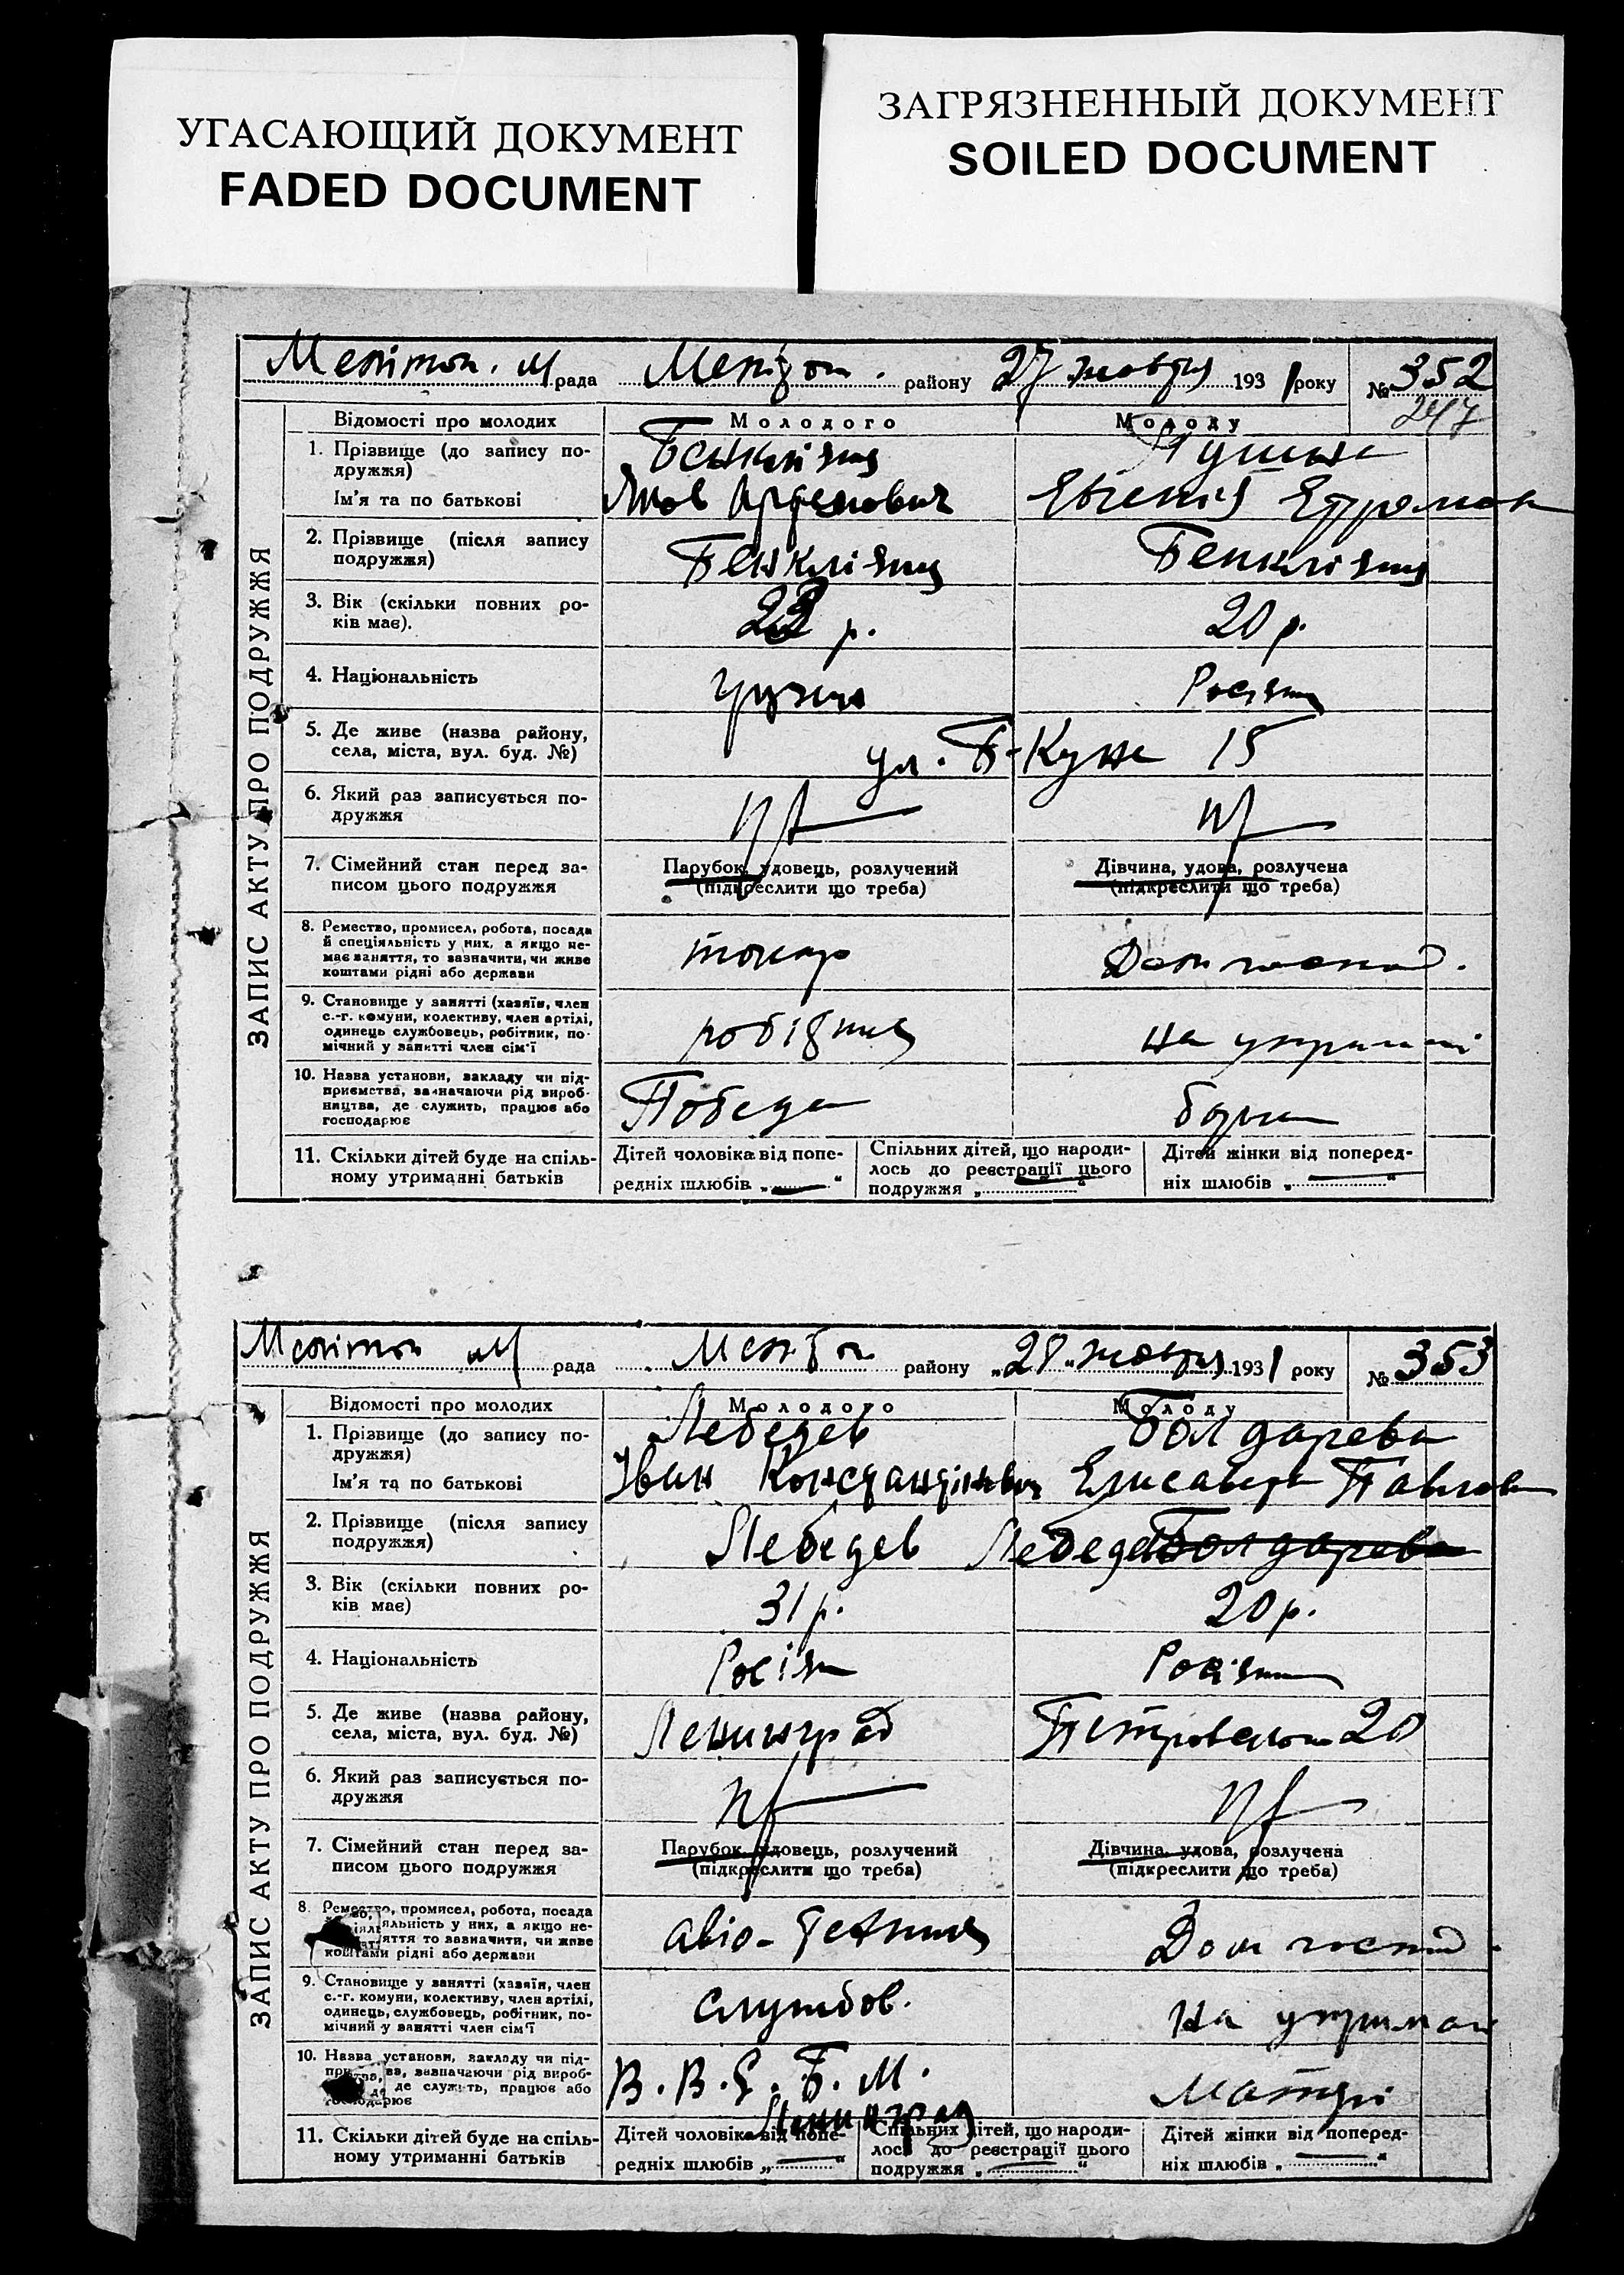 УГАСАЮЩИЙ ДОКУМЕНТ
FADED DOCUMENT
ЗАГРЯЗНЕННЫЙ ДОКУМЕНТ
SOILED DOCUMENT
ЗАПИС АКТУ ПРО ПОДРУЖЖЯ
Мелітоп. М рада Меліт оп. району 27 жовтня 1931 року № 352
247
Відомості про молодих Молодого Молоду
1. Прізвище (до запису по-
дружжя)
Ім'я та по батькові Яков Евгенія Ефремов
2. Прізвище (після запису
подружжя)
3. Вік (скільки повних ро-
ків має). 23 р. 20 р.
4. Національність грузин Росіянк
5. Де живе (назва району,
села, міста, вул. буд. №) ул. Б-Куна 15
6. Який раз записується по-
дружжя
7. Сімейний стан перед за-
писом цього подружжя
Парубок, удовець, розлучений
(підкреслити що треба)
Дівчина, удова, розлучена
(підкреслити що треба)
8. Ремество, промисел, робота, посада
й спеціяльність у них, а якщо не-
має заняття, то зазначити, чи живе
коштами рідні або держави
токар Дом господ.
9. Становище у занятті (хазяїн, член
с.-г. комуни, колективу, член артілі,
одинець службовець, робітник, по-
мічний у занятті член сім'ї
робітник на утриманні
10. Назва установи, закладу чи під-
приємства, зазначаючи рід вироб-
ництва, де служить, працює або
господарює
Победа
11. Скільки дітей буде на спіль-
ному утриманні батьків
Дітей чоловіка від попе-
редніх шлюбів „—“
Спільних дітей, що народи-
лось до реєстрації цього
подружжя „—“
Дітей жінки від поперед-
ніх шлюбів „—“
ЗАПИС АКТУ ПРО ПОДРУЖЖЯ
Мелітоп М рада Меліт оп району „28„ жовтня 1931 року № 353
Відомості про молодих Молодого Молоду
1. Прізвище (до запису по-
дружжя) Лебедев Болдарева
Ім'я та по батькові Іван Константінович Елисавета Павлов
2. Прізвище (після запису
подружжя) Лебедев Лебедев Болдарева
3. Вік (скільки повних ро-
ків має) 31 р. 20 р.
4. Національність Росіян Росіянк
5. Де живе (назва району,
села, міста, вул. буд. №) Ленинград Петровского 20
6. Який раз записується по-
дружжя
7. Сімейний стан перед за-
писом цього подружжя
Парубок, удовець, розлучений
(підкреслити що треба)
Дівчина, удова, розлучена
(підкреслити що треба)
8. Ремество, промисел, робота, посада
яльність у них, а якщо не-
яття то зазначити, чи живе
коштами рідні або держави
авіо-технік Дом господ.
9. Становище у занятті (хазяїн, член
с.-г. комуни, колективу, член артілі,
одинець, службовець, робітник, по-
мічний у занятті член сім'ї
службов. На утриман
10. Назва установи, закладу чи під-
ва, зазначаючи рід вироб-
де служить, працює або
господарює
Ленинград
Матері
11. Скільки дітей буде на спіль-
ному утриманні батьків
Дітей чоловіка від попе-
редніх шлюбів „—“
Спільних дітей, що народи-
лось до реєстрації цього
подружжя „—“
Дітей жінки від поперед-
ніх шлюбів „—“